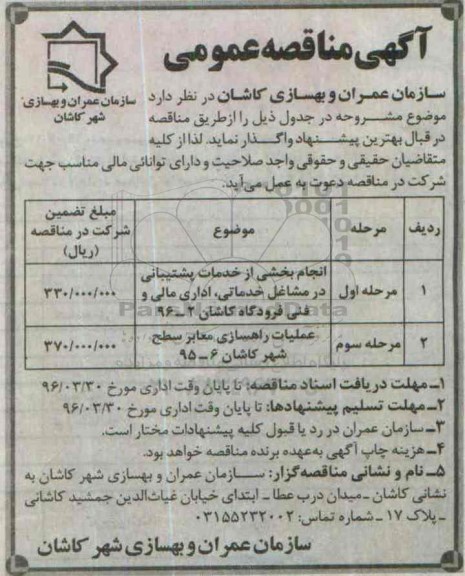 آگهی مناقصه عمومی
سازمان عمران و بهسازی
شهر کاشان
سازمان عمران و بهسازی کاشان در نظر دارد
موضوع مشروحه در جدول ذیل را از طریق مناقصه
در قبال بهترین پیشنهاد واگذار نماید. لذا از کلیه
متقاضیان حقیقی و حقوقی واجد صلاحیت و دارای توانائی مالی مناسب جهت
شرکت در مناقصه دعوت به عمل می‌آید.
ردیف مرحله موضوع مبلغ تضمین شرکت در مناقصه (ریال)
۱ مرحله اول انجام بخشی از خدمات پشتیبانی در مشاغل خدماتی، اداری مالی و فنی فرودگاه کاشان ۲ـ۹۶ ۳۳۰/۰۰۰/۰۰۰
۲ مرحله سوم عملیات راهسازی معابر سطح شهر کاشان ۶ـ۹۵ ۳۷۰/۰۰۰/۰۰۰
۱ـ مهلت دریافت اسناد مناقصه: تا پایان وقت اداری مورخ ۹۶/۰۳/۳۰
۲ـ مهلت تسلیم پیشنهادها: تا پایان وقت اداری مورخ ۹۶/۰۳/۳۰
۳ـ سازمان عمران در رد یا قبول کلیه پیشنهادات مختار است.
۴ـ هزینه چاپ آگهی به‌عهده برنده مناقصه خواهد بود.
۵ـ نام و نشانی مناقصه‌گزار: سازمان عمران و بهسازی شهر کاشان به
نشانی کاشان ـ میدان درب عطا ـ ابتدای خیابان غیاث‌الدین جمشید کاشانی
ـ پلاک ۱۷ ـ شماره تماس: ۰۳۱۵۵۲۳۲۰۰۲
سازمان عمران و بهسازی شهر کاشان